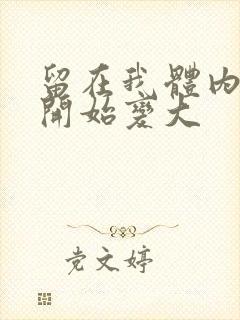 留在我體內
開始變大
党文婷